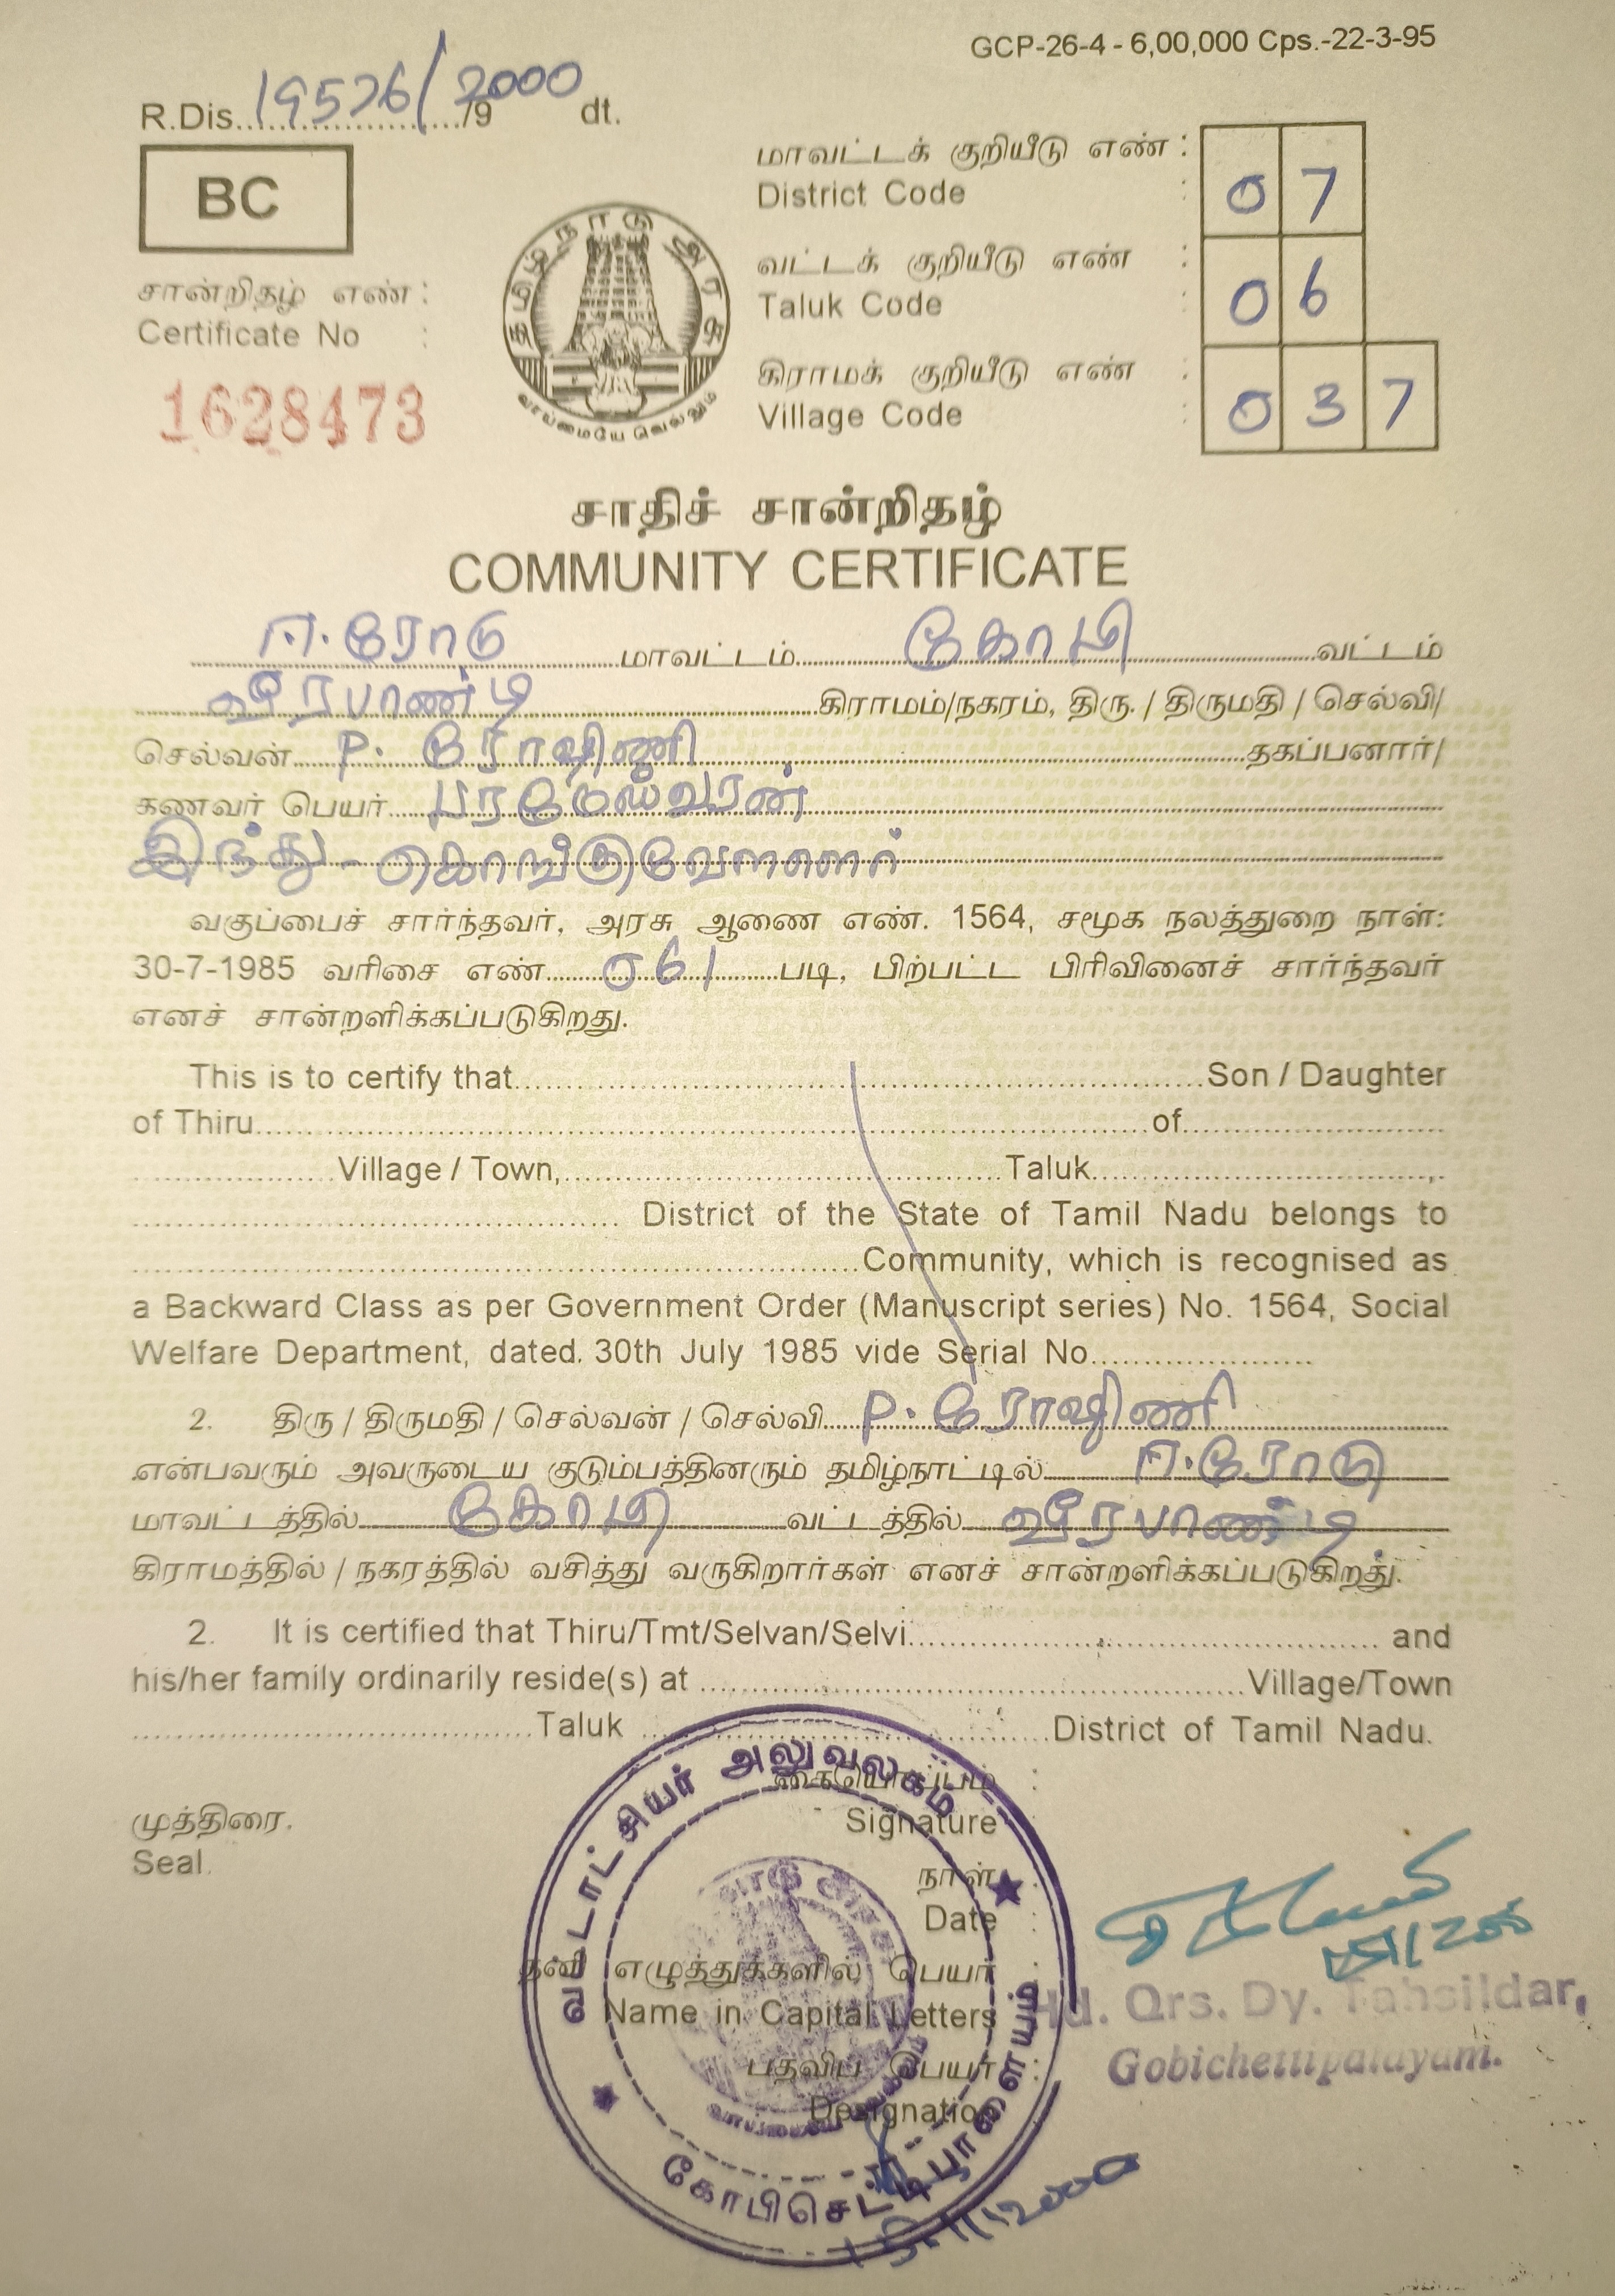 GCP-26-4 - 6,00,000 Cps.-22-3-95
R.Dis. 19526/2000 /9 dt.
BC
சான்றிதழ் எண் :
Certificate No :
1628473
தமிழ்நாடு அரசு
வாய்மையே வெல்லும்
மாவட்டக் குறியீடு எண் :
District Code : 0 7
வட்டக் குறியீடு எண் :
Taluk Code : 0 6
கிராமக் குறியீடு எண் :
Village Code : 0 3 7
சாதிச் சான்றிதழ்
COMMUNITY CERTIFICATE
ஈ.ரோடு மாவட்டம் கோபி வட்டம்
வீரபாண்டி கிராமம்/நகரம், திரு. / திருமதி / செல்வி/
செல்வன் P. ரோஷிணி தகப்பனார்/
கணவர் பெயர் பரமேஸ்வரன்
இந்து - கொங்குவேளாளர்
வகுப்பைச் சார்ந்தவர், அரசு ஆணை எண். 1564, சமூக நலத்துறை நாள்:
30-7-1985 வரிசை எண் 061 படி, பிற்பட்ட பிரிவினைச் சார்ந்தவர்
எனச் சான்றளிக்கப்படுகிறது.
This is to certify that Son / Daughter
of Thiru of
Village / Town, Taluk
District of the State of Tamil Nadu belongs to
Community, which is recognised as
a Backward Class as per Government Order (Manuscript series) No. 1564, Social
Welfare Department, dated. 30th July 1985 vide Serial No.
2. திரு / திருமதி / செல்வன் / செல்வி P. ரோஷிணி
என்பவரும் அவருடைய குடும்பத்தினரும் தமிழ்நாட்டில் ஈ.ரோடு
மாவட்டத்தில் கோபி வட்டத்தில் வீரபாண்டி
கிராமத்தில் / நகரத்தில் வசித்து வருகிறார்கள் எனச் சான்றளிக்கப்படுகிறது.
2. It is certified that Thiru/Tmt/Selvan/Selvi and
his/her family ordinarily reside(s) at Village/Town
Taluk District of Tamil Nadu.
கையொப்பம் :
Signature
முத்திரை.
Seal.
நாள் :
Date :
தனி எழுத்துக்களில் பெயர் :
Name in Capital Letters
பதவிப் பெயர் :
Designation
Hd. Qrs. Dy. Tahsildar,
Gobichettipalayam.
வட்டாட்சியர் அலுவலகம்
கோபிசெட்டிபாளையம்
15.11.2000